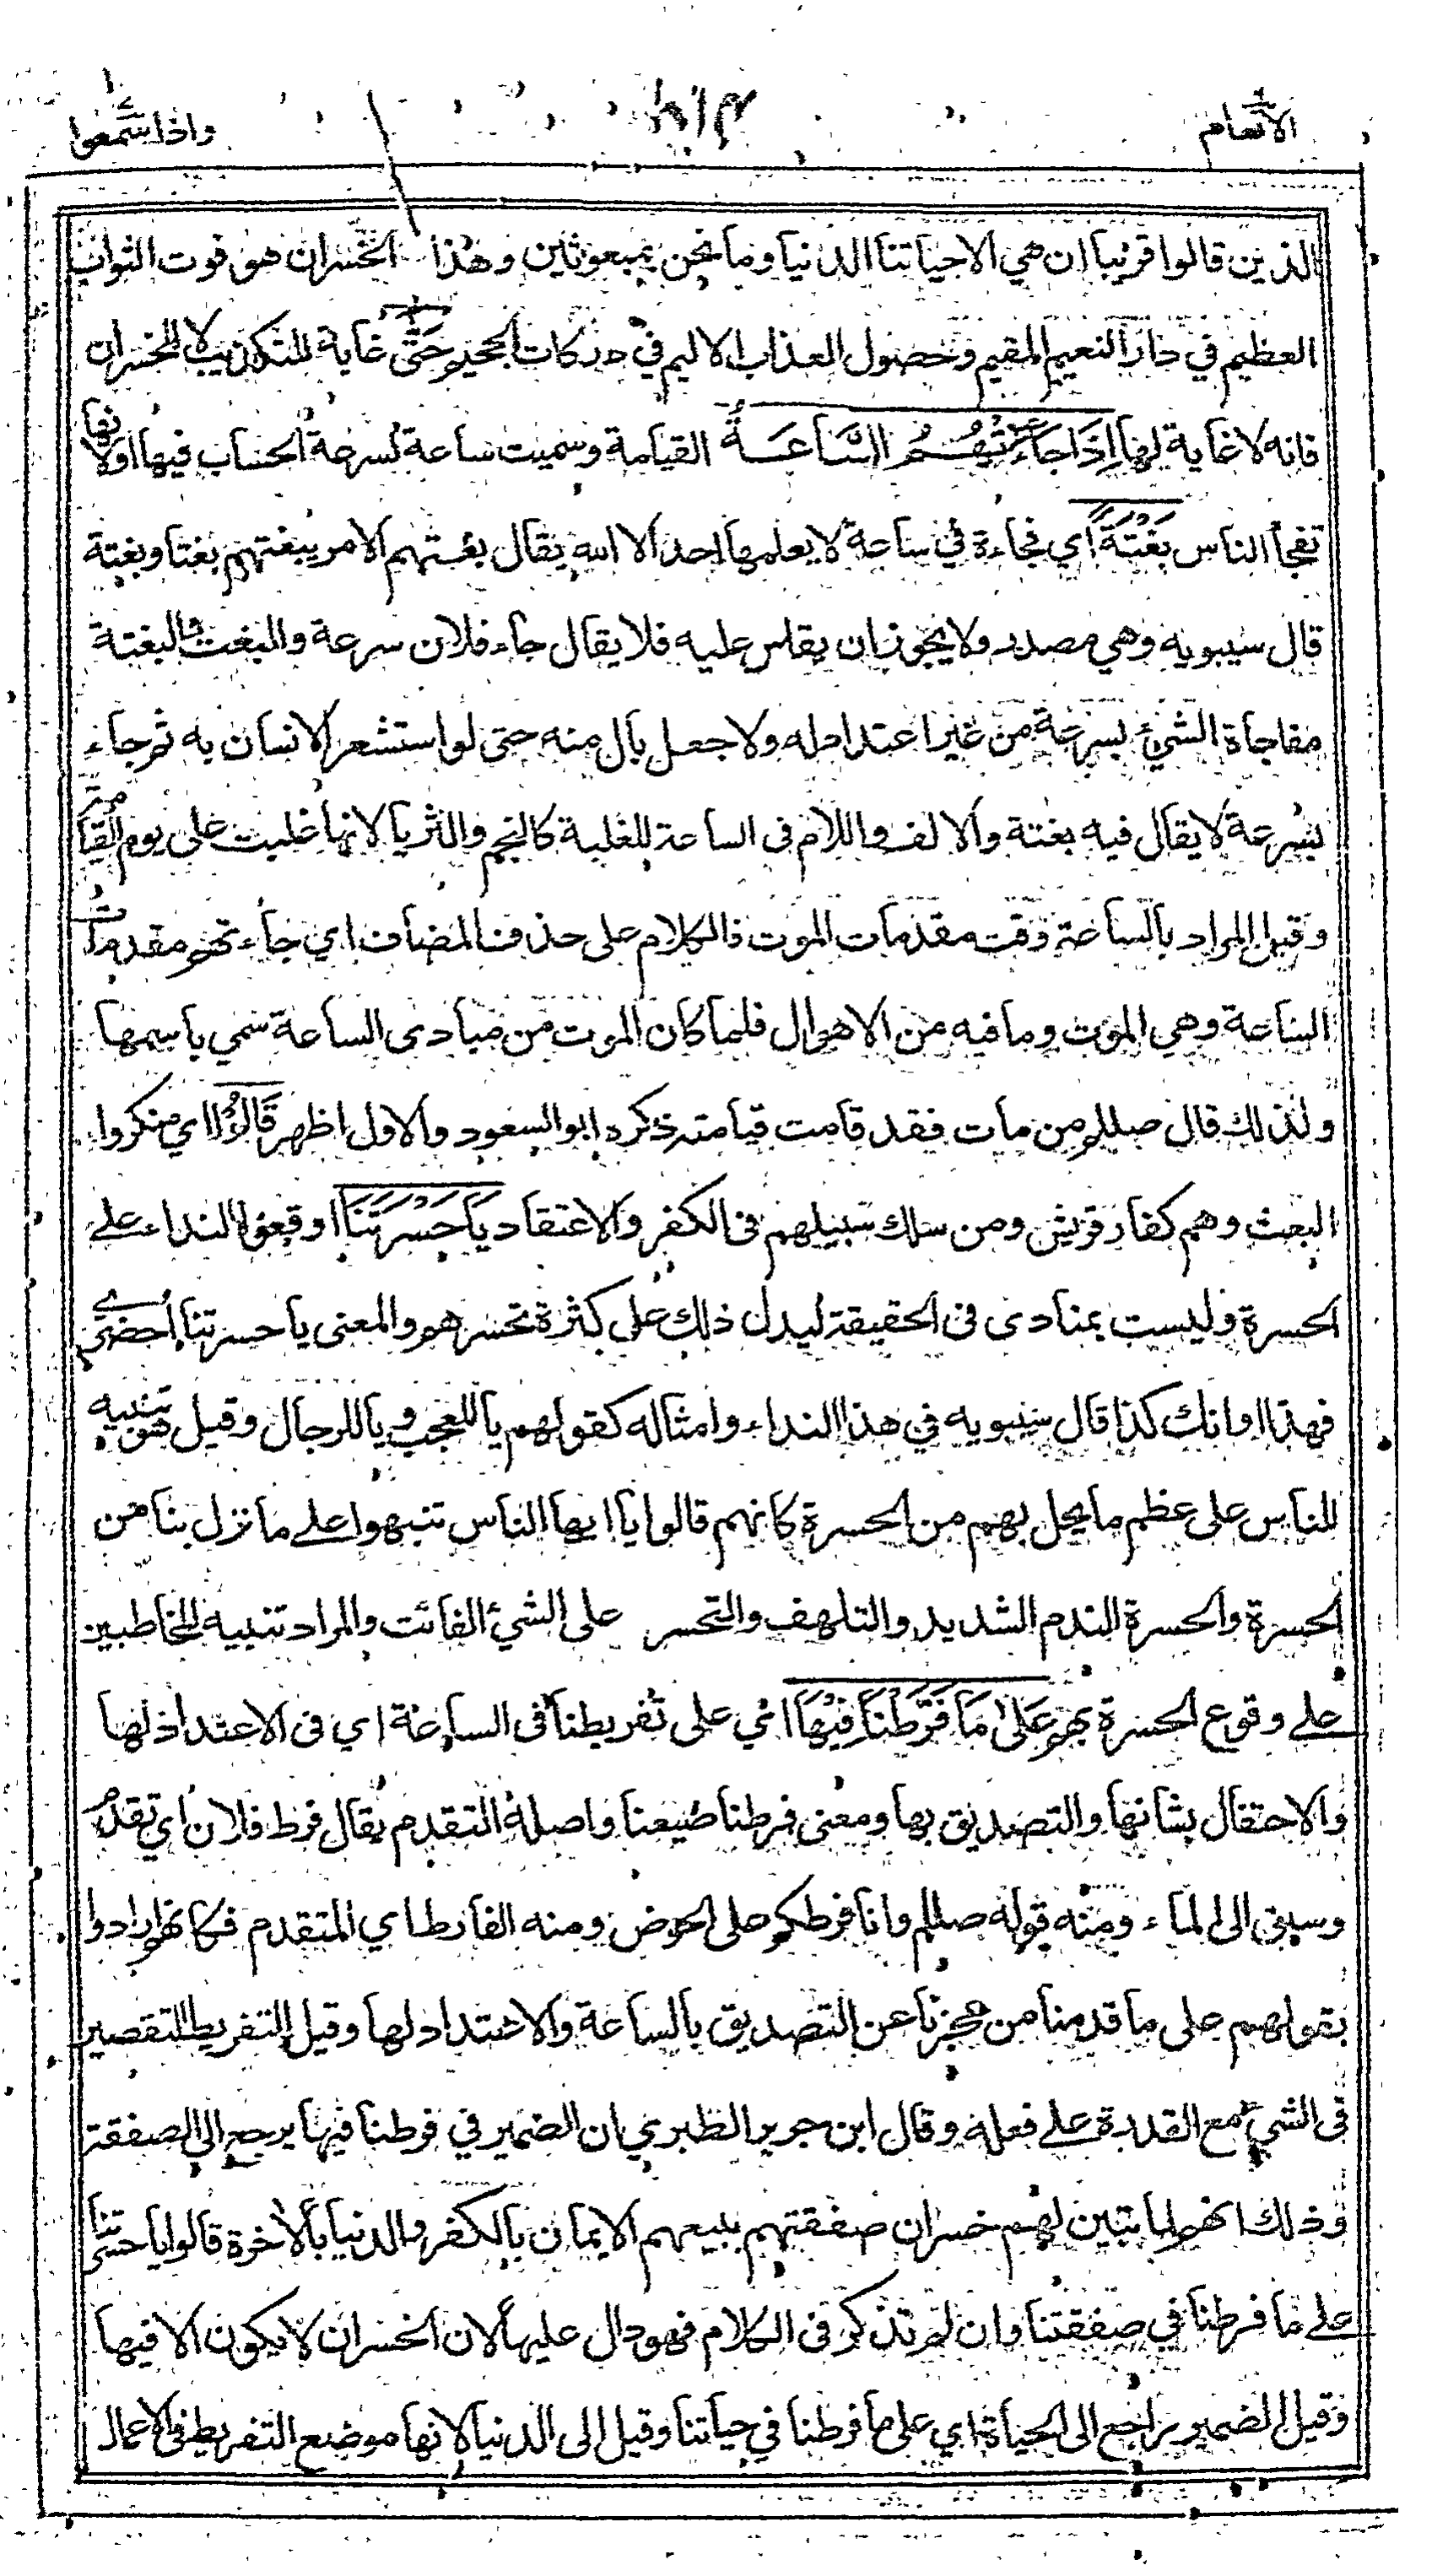 الانعام
واذا سمعوا
الذين قالوا قريبا ان هي الا حياتنا الدنيا وما نحن بمبعوثين وهذا الخسران هو فوت الثواب
العظيم في دار النعيم المقيم وحصول العذاب الاليم في دركات الجحيم حَتّٰى غاية للتكذيب لا للخسران
فانه لا غاية لها اِذَا جَاءَتْهُمُ السَّاعَةُ القيامة وسميت ساعة لسرعة الحساب فيها او لانها
تفجأ الناس بَغْتَةً اي فجاءة في ساعة لا يعلمها احد الا الله يقال بغتهم الامر يبغتهم بغتا وبغتة
قال سيبويه وهي مصدر ولا يجوز ان يقاس عليه فلا يقال جاء فلان سرعة والبغت والبغتة
مفاجأة الشيئ بسرعة من غير اعتداد له ولا جعل بال منه حتى لو استشعر الانسان به ثم جاء
بسرعة لا يقال فيه بغتة والالف واللام فى الساعة للغلبة كالنجم والثريا لانها غلبت على يوم القيامة
وقيل المراد بالساعة وقت مقدمات الموت فالكلام على حذف المضاف اي جاءتهم مقدمات
الساعة وهي الموت وما فيه من الاهوال فلما كان الموت من مبادى الساعة سمي باسمها
ولذلك قال صللم من مات فقد قامت قيامته ذكره ابو السعود والاول اظهر قَالُوْا اي منكروا
البعث وهم كفار قريش ومن سلك سبيلهم فى الكفر والاعتقاد يَا حَسْرَتَنَا اوقعوا النداء على
الحسرة وليست بمنادى فى الحقيقة ليدل ذلك على كثرة تحسرهم والمعنى يا حسرتنا احضري
فهذا اوانك كذا قال سيبويه في هذا النداء وامثاله كقولهم يا للعجب ويا للرجال وقيل هو تنبيه
للناس على عظم ما يحل بهم من الحسرة كانهم قالوا يا ايها الناس تنبهوا على ما نزل بنا من
الحسرة والحسرة الندم الشديد والتلهف والتحسر على الشيئ الفائت والمراد تنبيه المخاطبين
على وقوع الحسرة بهم عَلٰى مَا فَرَّطْنَا فِيْهَا اي على تفريطنا فى الساعة اي فى الاعتداد لها
والاحتفال بشانها والتصديق بها ومعنى فرطنا ضيعنا واصله التقدم يقال فرط فلان اي تقدم
وسبق الى الماء ومنه قوله صللم وانا فرطكم على الحوض ومنه الفارط اي المتقدم فكانهم ارادوا
بقولهم على ما قدمنا من عجزنا عن التصديق بالساعة والاعتداد لها وقيل التفريط التقصير
فى الشيئ مع القدرة على فعله وقال ابن جرير الطبري ان الضمير في فرطنا فيها يرجع الى الصفقة
وذلك انهم لما تبين لهم خسران صفقتهم ببيعهم الايمان بالكفر والدنيا بالآخرة قالوا يا حسرتنا
على ما فرطنا في صفقتنا وان لم تذكر فى الكلام فهو دال عليها لان الخسران لا يكون الا فيها
وقيل الضمير راجع الى الحياة اي على ما فرطنا في حياتنا وقيل الى الدنيا لانها موضع التفريط فى الاعمال